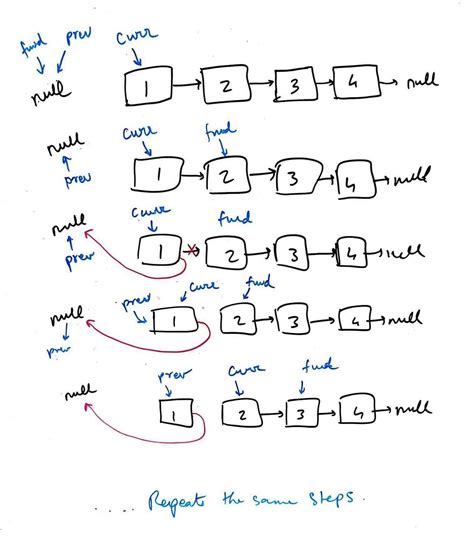 fwd prev curr
null 1 2 3 4 null
null curr fwd
prev 1 2 3 4 null
null curr fwd
prev 1 2 3 4 null
null prev curr fwd
prev 1 2 3 4 null
null prev curr fwd
1 2 3 4 null
..... Repeate the same steps.